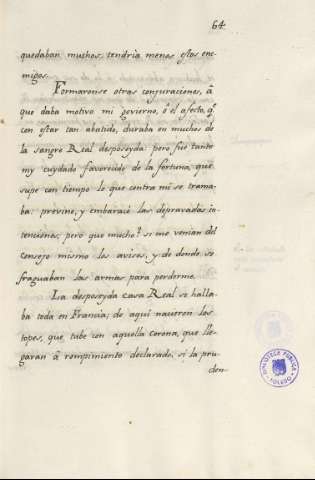 64.
quedaban muchos, tendria menos estos ene-
migos.
Formaronse otras conjuraciones, â
que daba motivo mi govierno, ô el afecto, qe
con estar tan abatido, duraba en muchos de
la sangre Real desposeyda: pero fue tanto
my cuydado favorecido de la fortuna, que
supe con tiempo lo que contra mi se trama-
ba: previne, y embaracè las depravadas in-
tenciones; pero que mucho? si me venian del
consejo mismo los avisos, y de donde se
fraguaban las armas para perderme.
La desposeyda casa Real se halla-
ba toda en Francia; de aqui nacieron los
topes, que tube con aquella corona, que lle-
garan â rompimiento declarado, si la pru-
den-
BIBLIOTECA PUBLICA
TOLEDO